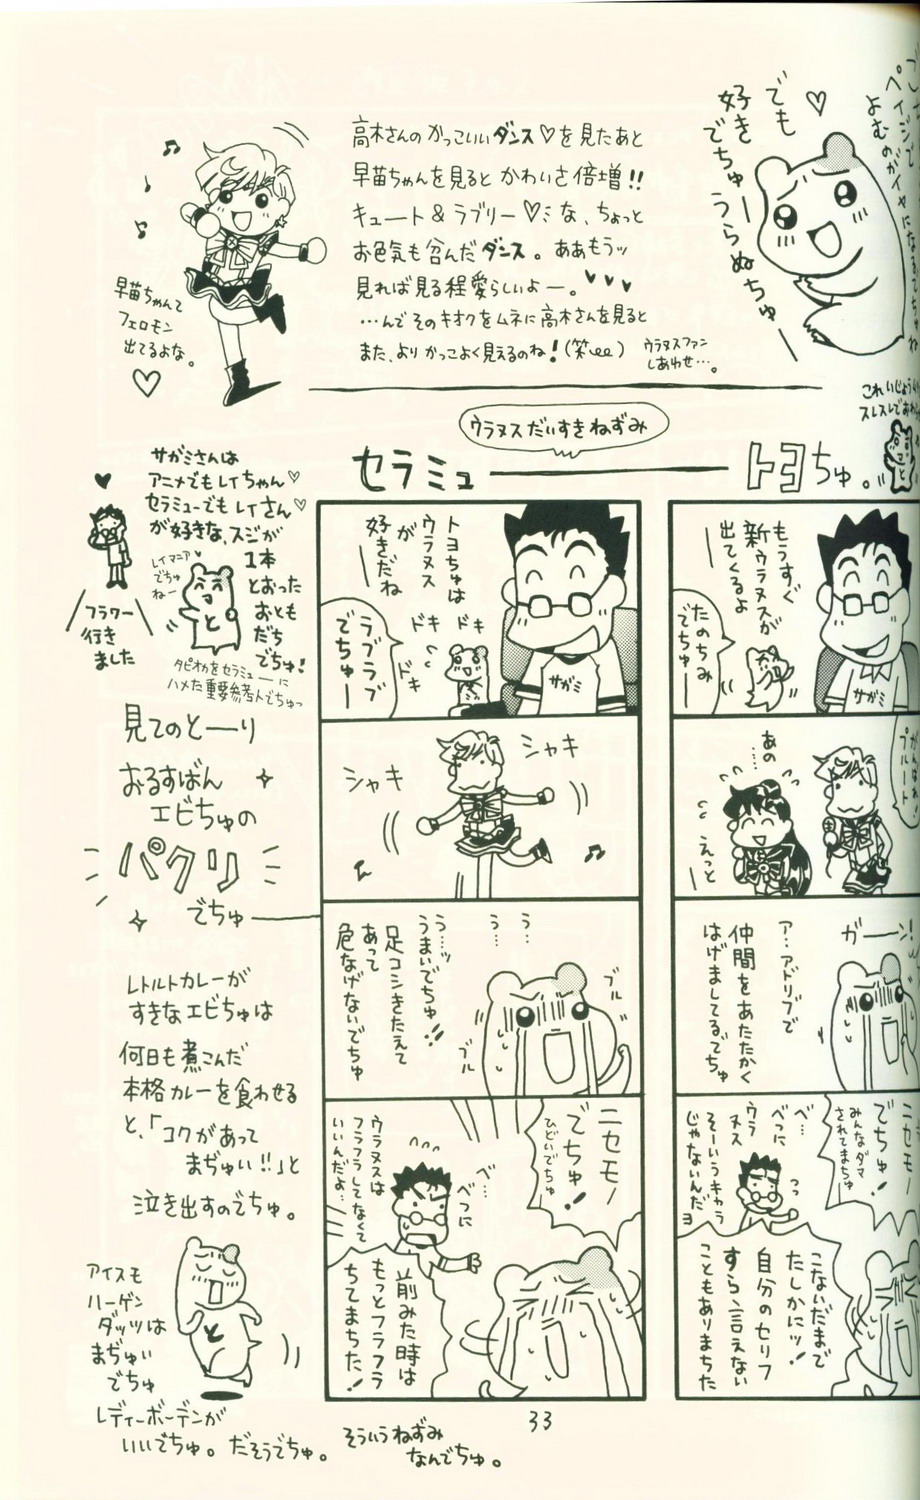 でも
好き
でちゅーうらぬちゅー
よむのがイヤになるでちゅね
高木さんのかっこいいダンス♡を見たあと
早苗ちゃんを見るとかわいさ倍増!!
キュート&ラブリー♡な、ちょっと
お色気も含んだダンス。ああもうッ
見れば見る程愛らしいよー。♥♥♥
…んでそのキオクをムネに高木さんを見ると
また、よりかっこよく見えるのね!(笑)
ウラヌスファン
しあわせ…。
早苗ちゃんて
フェロモン
出てるよな。
♡
ウラヌスだいすきねずみ
セラミュートヨちゅ。
もうすぐ
新ウラヌスが
出てくるよ
ー
たのちみ
でちゅー
サガミ
プルート
あの
えっと
ガーン!
ア…アドリブで
仲間をあたたかく
はげましてるでちゅ
ニセモノ
でちゅ!
みんなダマ
されてまちゅ
べ…
べつに
ウラ
ヌス
そーいうキャラ
じゃないんだヨ
こないだまで
たしかにッ!
自分のセリフ
すら言えない
こともありまちた
トヨちゅは
ウラヌス
が
好きだね
ー
ラブラブ
でちゅー
ドキ
ドキ
ドキ
サガミ
シャキ
シャキ
う…
う…
う…ッ
うまいでちゅ!!
足コシきたえて
あって
危なげないでちゅ
ブル
ブル
ニセモノ
でちゅ!
ひどいでちゅ
べ…
べつに
ウラヌスは
フラフラしてなくて
いいんだよ…
前みた時は
もっとフラフラ
ちてまちた!
サガミさんは
アニメでもレイちゃん♡
セラミューでもレイさん♡
が好きな、スジが
1本
とおった
おとも
だち
でちゅ!
レイマニア♥
でちゅ
ねー
フラワー
行き
ました
タピオカをセラミューに
ハメた重要参考人でちゅっ
見てのとーり
おるすばん
エビちゅの
パクリ
でちゅ
レトルトカレーが
すきなエビちゅは
何日も煮こんだ
本格カレーを食わせる
と、「コクがあって
まぢゅい!!」と
泣き出すのでちゅ。
アイスモ
ハーゲン
ダッツは
まぢゅい
でちゅ
レディーボーデンが
いいでちゅ。だそうでちゅ。
そういうねずみ
なんでちゅ。
33